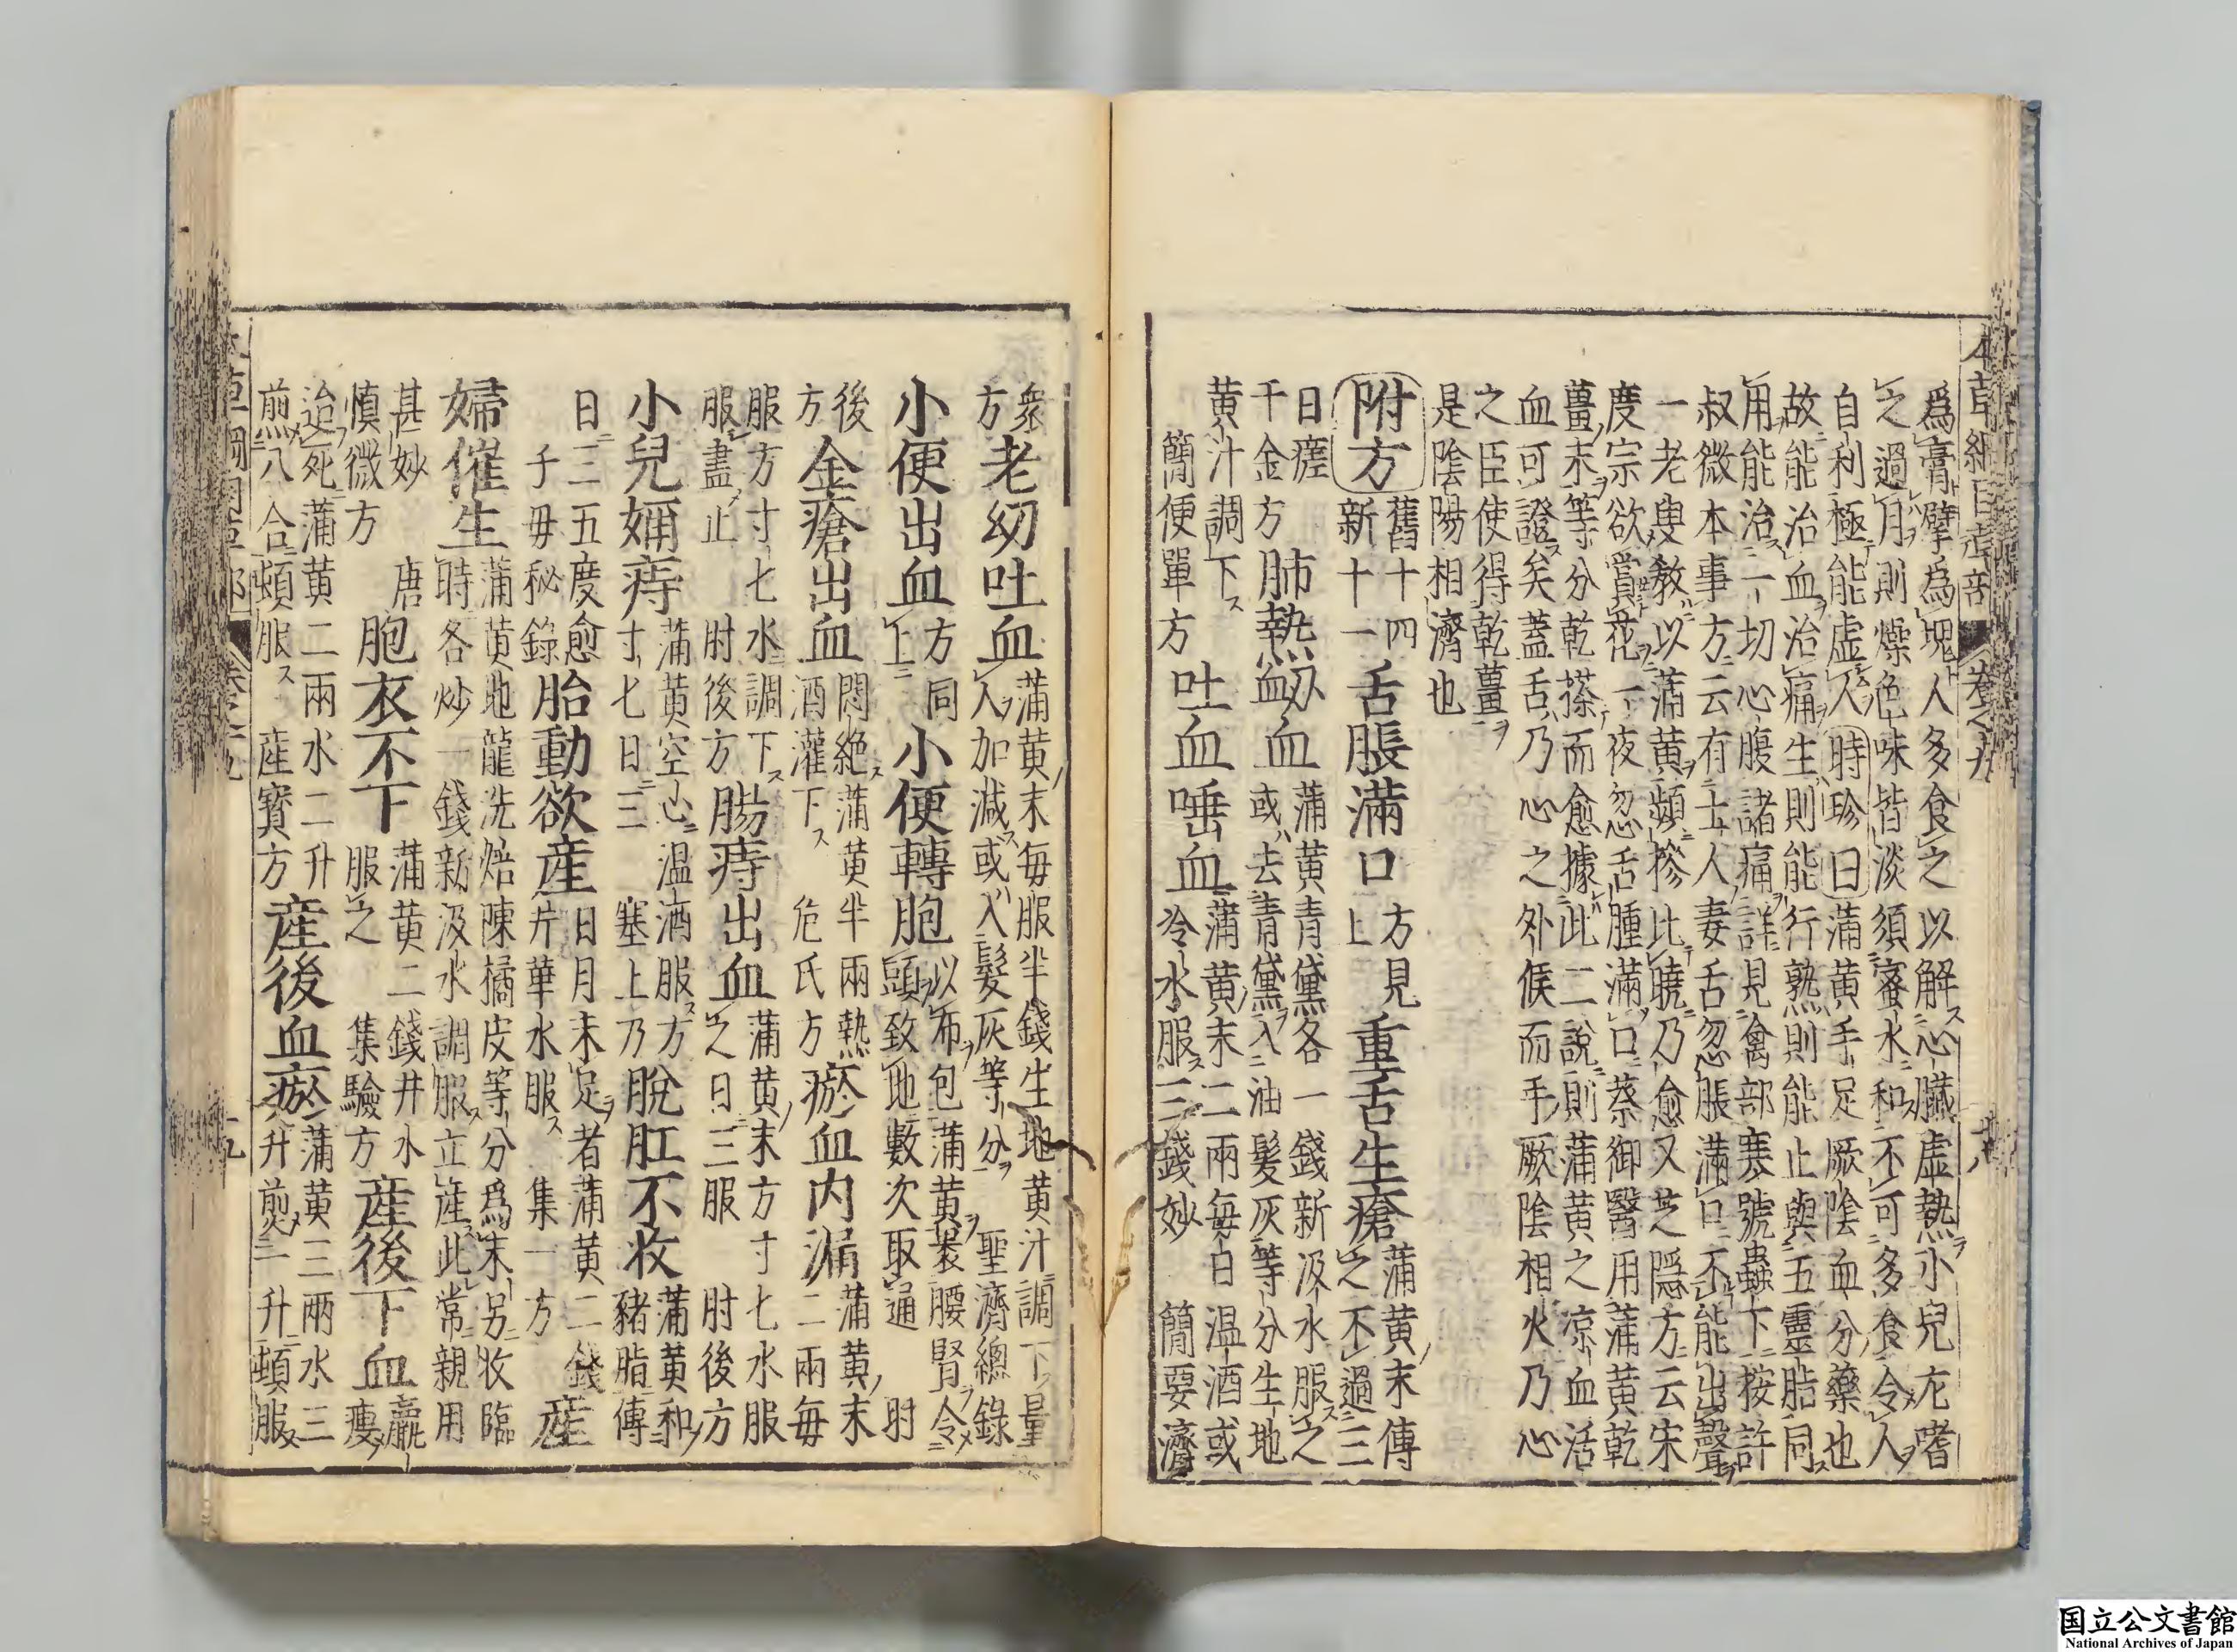 本草綱目草部 卷之十九 十八
爲膏擘爲塊人多食之以解心臟虚熱小兒尤嗜
之過月則燥色味皆淡須蜜水和不可多食令人
自利極能虚人時珍曰蒲黄手足厥陰血分藥也
故能治血治痛生則能行熟則能止與五靈脂同
用能治一切心腹諸痛詳見禽部寒號蟲下按許
叔微本事方云有士人妻舌忽脹滿口不能出聲
一老叟教以蒲黄頻摻比曉乃愈又芝隱方云宋
度宗欲賞花一夜忽舌腫滿口蔡御醫用蒲黄乾
薑末等分乾搽而愈據此二說則蒲黄之凉血活
血可證矣蓋舌乃心之外候而手厥陰相火乃心
之臣使得乾薑
是陰陽相濟也
附方 舊十四新十一 舌脹滿口 方見上 重舌生瘡 蒲黄末傅之不過三
日瘥千金方 肺熱衂血 蒲黄青黛各一錢新汲水服之或去青黛入油髮灰等分生地
黄汁調下簡便單方 吐血唾血 蒲黄末二兩每日温酒或冷水服三錢妙 簡要濟
衆方 老幼吐血 蒲黄末每服半錢生地黄汁調下量人加減或入髮灰等分 聖濟總錄
小便出血 方同上 小便轉胞 以布包蒲黄褁腰腎令頭致地數次取通 肘
後方 金瘡出血 悶絶蒲黄半兩熱酒灌下 危氏方 瘀血内漏 蒲黄末二兩每
服方寸七水調下服盡止 肘後方 腸痔出血 蒲黄末方寸七水服之日三服 肘後方
小兒妳痔 蒲黄空心温酒服方寸七日三 塞上乃 脫肛不收 蒲黄和豬脂傅
日三五度愈子母秘錄 胎動欲産 日月未足者蒲黄二錢井華水服 集一方 産
婦催生 蒲黄地龍洗焙陳橘皮等分爲末另收臨時各炒一錢新汲水調服立産此常親用
甚妙 唐愼微方 胞衣不下 蒲黄二錢井水服之 集驗方 産後下血 羸瘦
迨死蒲黄二兩水二升煎八合頓服 産寶方 産後血瘀 蒲黄三兩水三升煎一升頓服
国立公文書館
National Archives of Japan